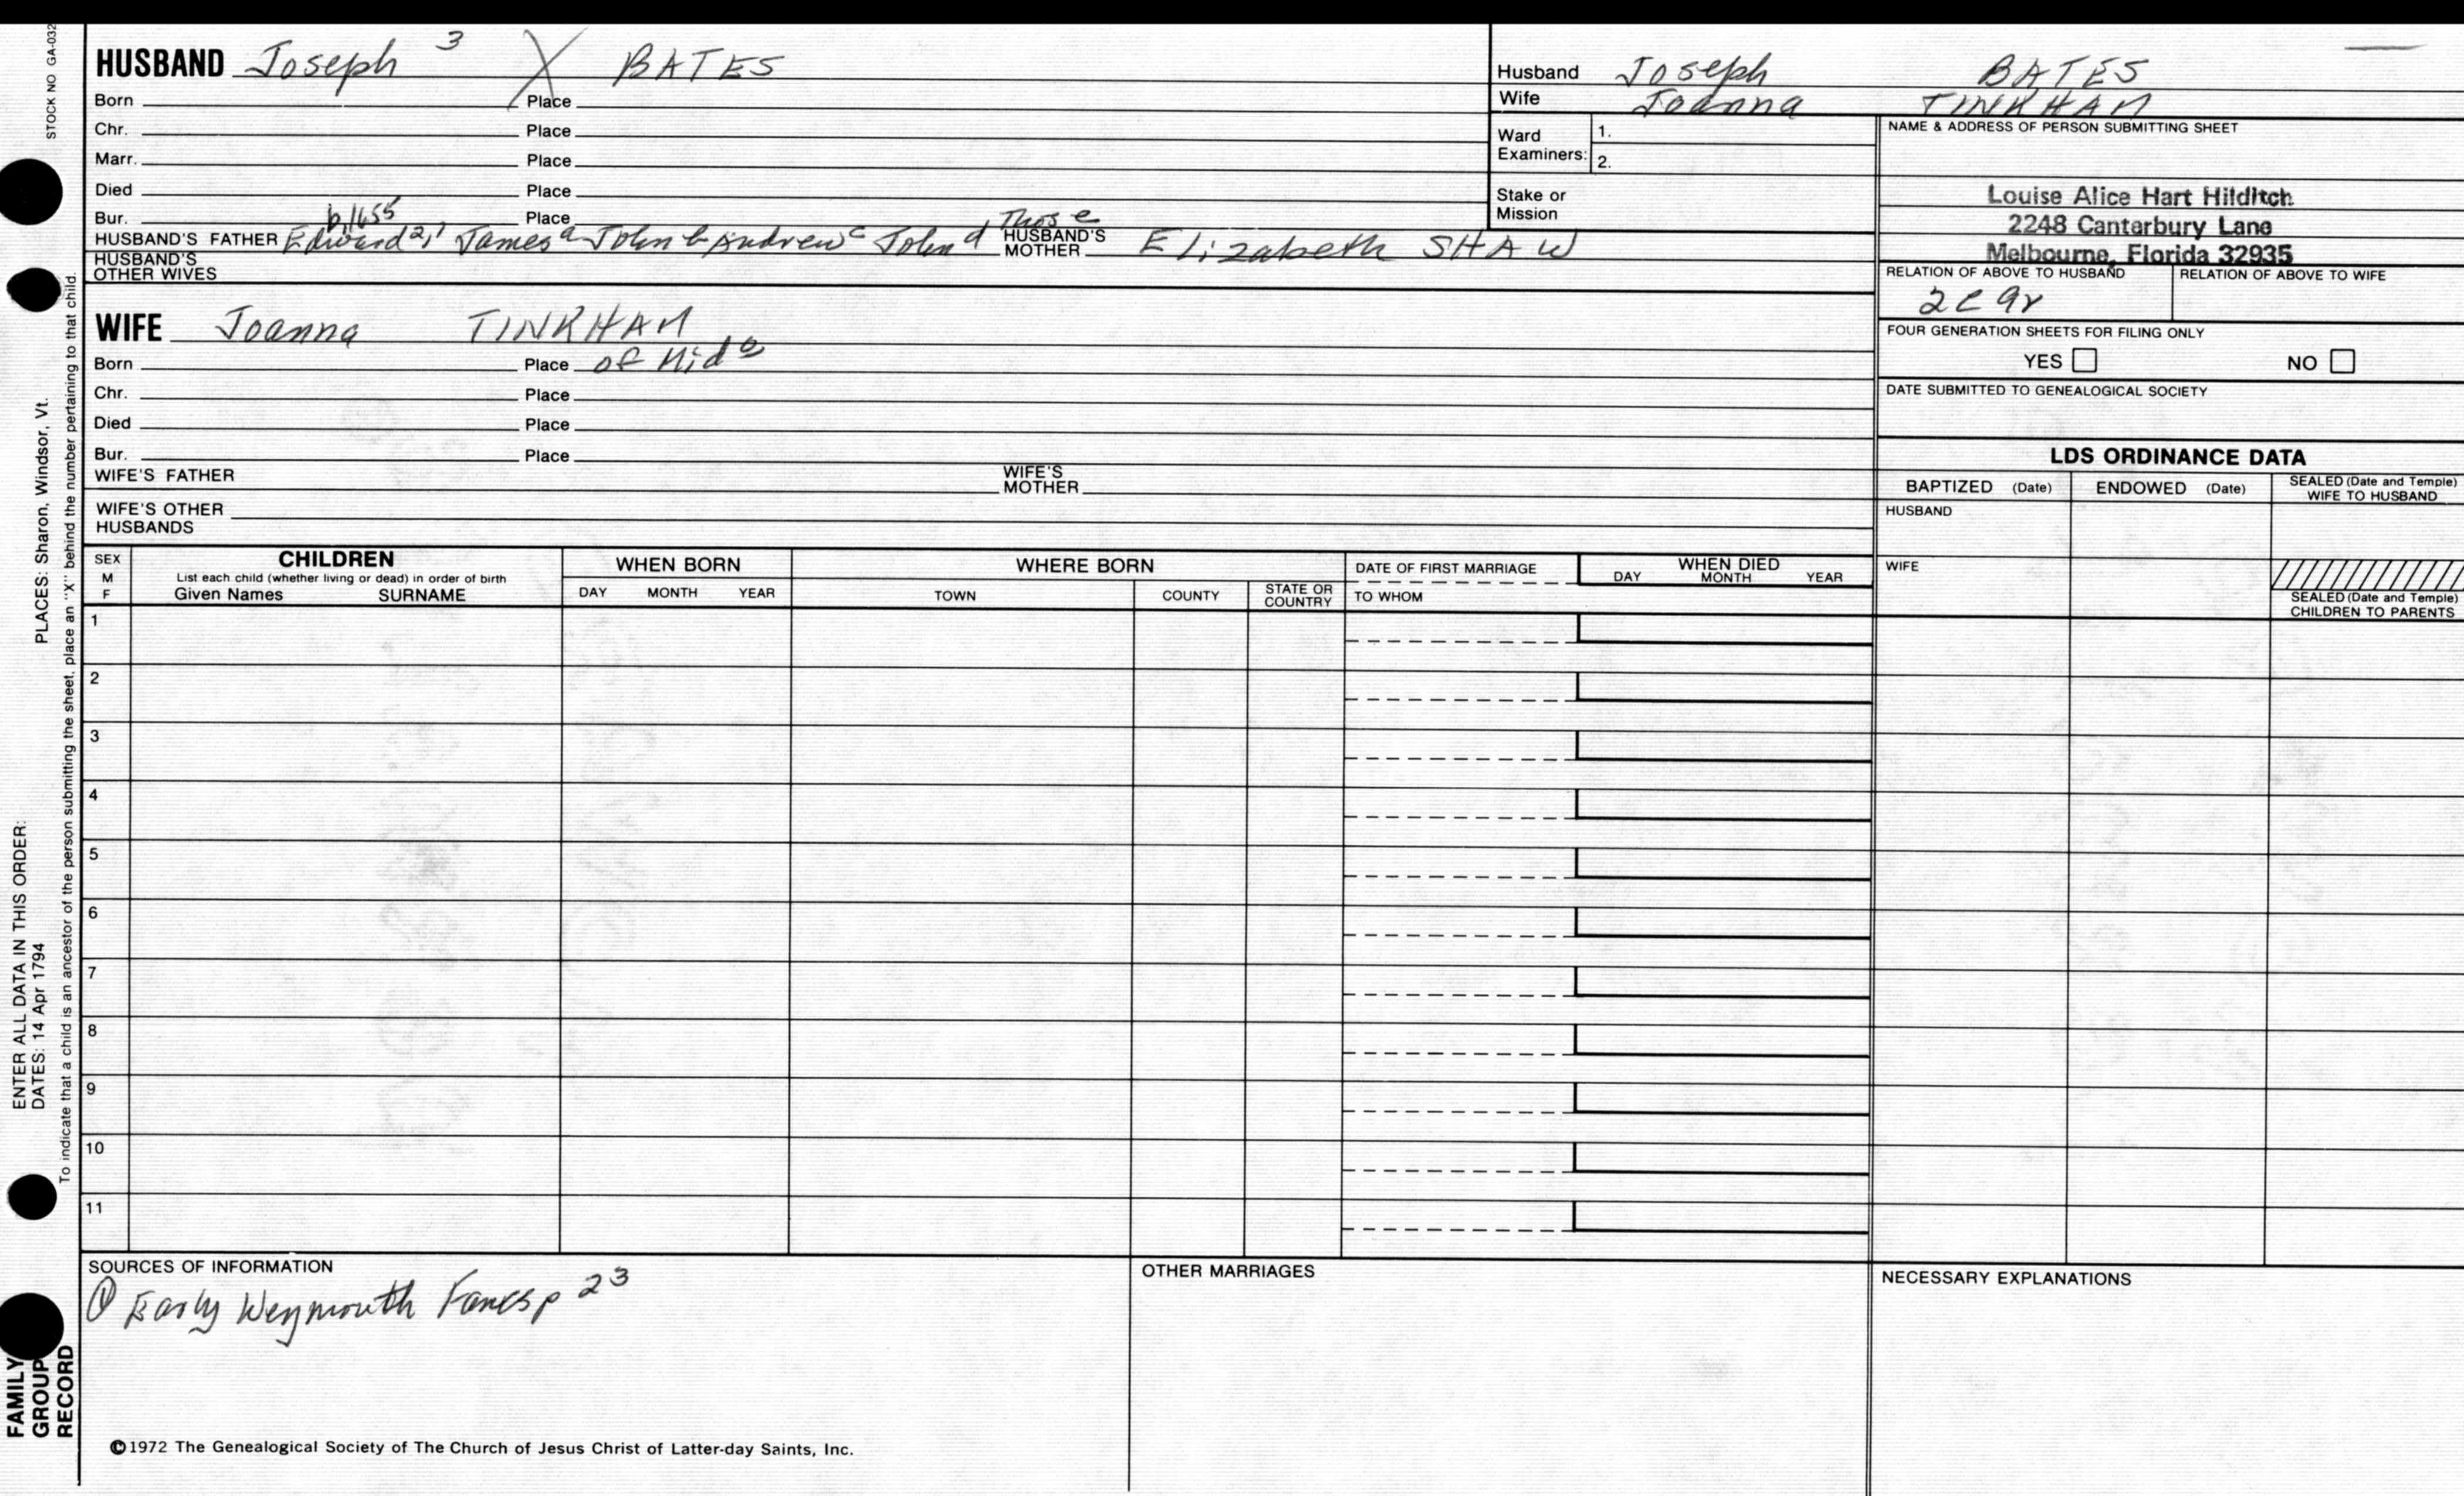 STOCK NO GA-032
HUSBAND Joseph 3 X BATES
Born Place
Chr. Place
Marr. Place
Died Place
Bur. Place
b 1655
HUSBAND'S FATHER Edward 2, 1 James a John b Andrew c John d Thos e HUSBAND'S MOTHER Elizabeth SHAW
HUSBAND'S OTHER WIVES
WIFE Joanna TINKHAM
Born Place of Mid
Chr. Place
Died Place
Bur. Place
WIFE'S FATHER WIFE'S MOTHER
WIFE'S OTHER HUSBANDS
Husband Joseph BATES
Wife Joanna TINKHAM
Ward Examiners: 1.
2.
Stake or Mission
NAME & ADDRESS OF PERSON SUBMITTING SHEET
Louise Alice Hart Hilditch
2248 Canterbury Lane
Melbourne, Florida 32935
RELATION OF ABOVE TO HUSBAND RELATION OF ABOVE TO WIFE
2C 9r
FOUR GENERATION SHEETS FOR FILING ONLY
YES NO
DATE SUBMITTED TO GENEALOGICAL SOCIETY
LDS ORDINANCE DATA
BAPTIZED (Date) ENDOWED (Date) SEALED (Date and Temple) WIFE TO HUSBAND
HUSBAND
WIFE
SEALED (Date and Temple) CHILDREN TO PARENTS
SEX M F
CHILDREN
List each child (whether living or dead) in order of birth
Given Names SURNAME
WHEN BORN
DAY MONTH YEAR
WHERE BORN
TOWN COUNTY STATE OR COUNTRY
DATE OF FIRST MARRIAGE
TO WHOM
WHEN DIED
DAY MONTH YEAR
1
2
3
4
5
6
7
8
9
10
11
SOURCES OF INFORMATION
① Early Weymouth Famcs p 23
OTHER MARRIAGES
NECESSARY EXPLANATIONS
©1972 The Genealogical Society of The Church of Jesus Christ of Latter-day Saints, Inc.
ENTER ALL DATA IN THIS ORDER:
DATES: 14 Apr 1794 PLACES: Sharon, Windsor, Vt.
To indicate that a child is an ancestor of the person submitting the sheet, place an "X" behind the number pertaining to that child.
FAMILY
GROUP
RECORD